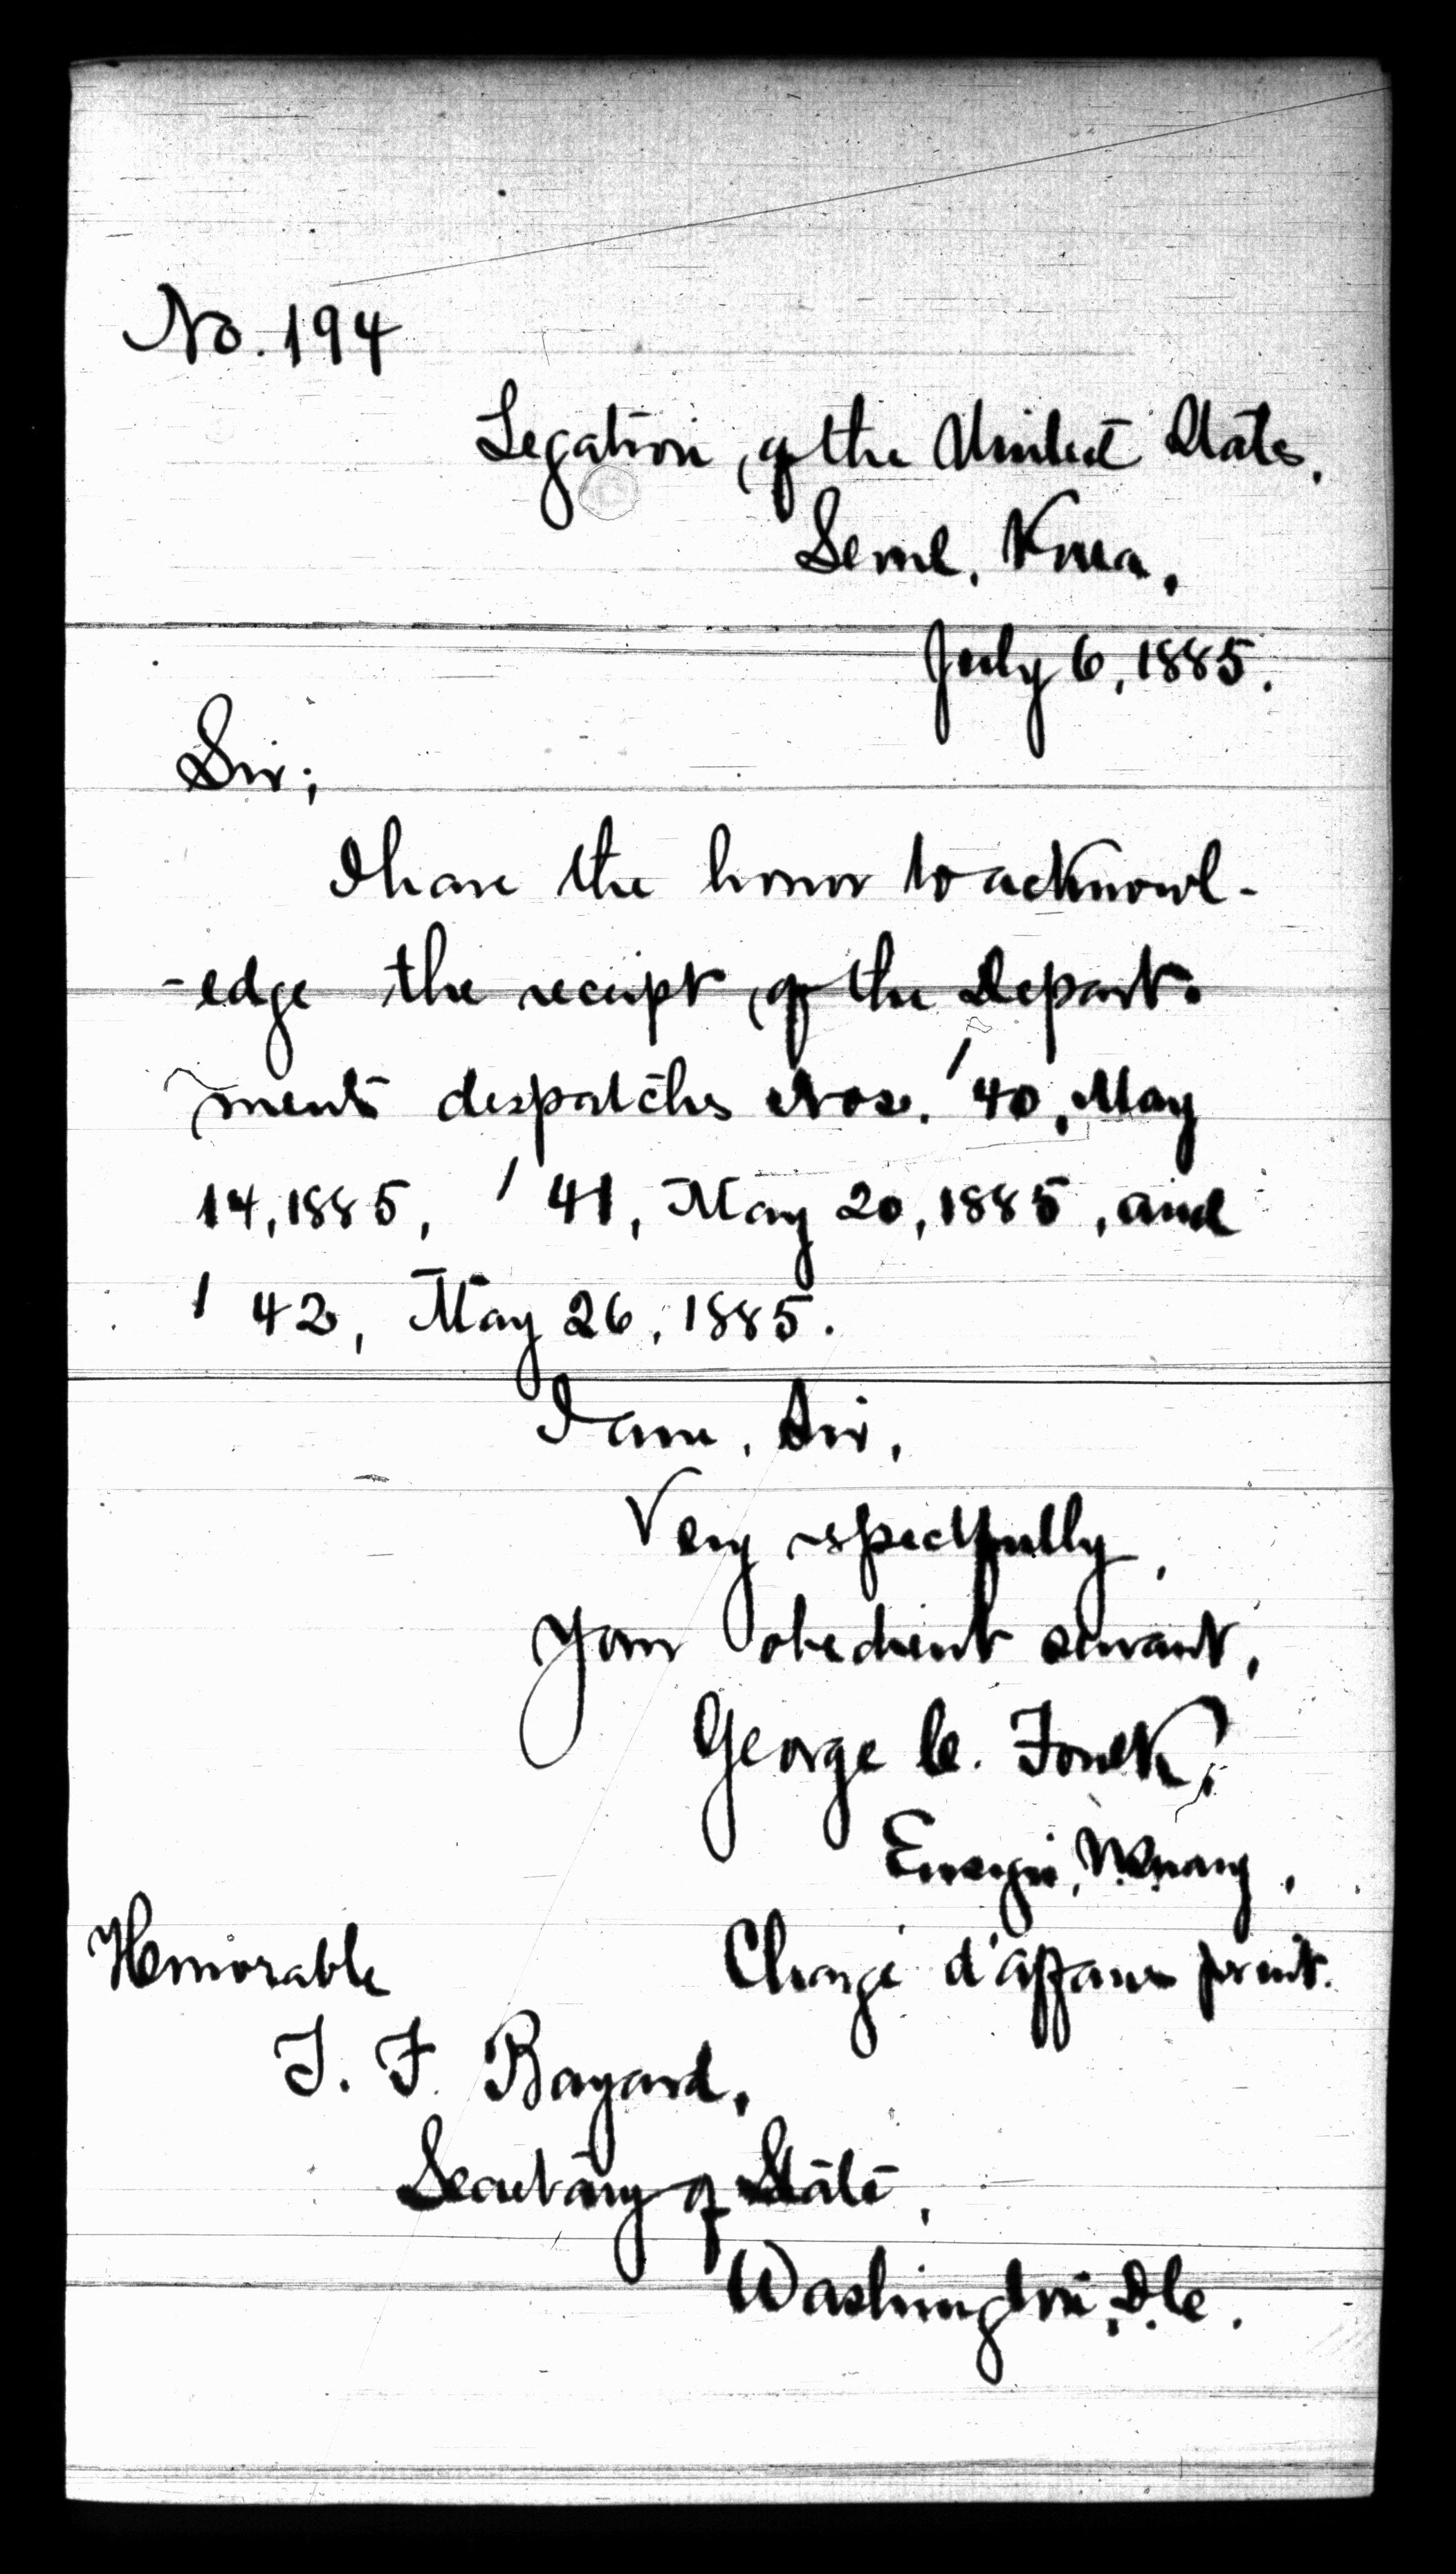 No. 194
Legation of the United States,
Seoul, Korea,
July 6, 1885.
Sir;
I have the honor to acknowl-
-edge the receipt of the Depart-
ments despatches Nos. ' 40, May
14, 1885, ' 41, May 20, 1885, and
' 42, May 26, 1885.
I am, Sir,
Very respectfully,
Your obedient servant,
George C. Foulk,
Ensign, U.S. Navy,
Honorable Chargé d'affaires
T. F. Bayard,
Secretary of State,
Washington, D.C.